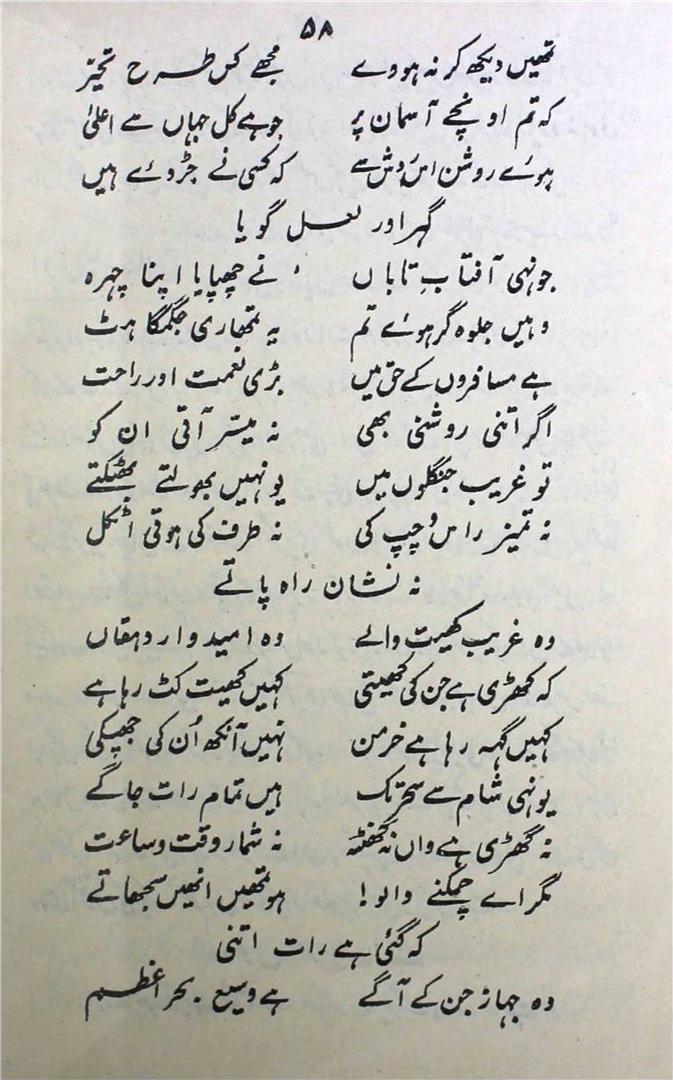 ۵۸
تمھیں دیکھ کر نہ ہووے مجھے کس طرح تحیّر
کہ تم اونچے آسمان پر جو ہے کل جہاں سے اعلیٰ
ہوئے روشن اس روش سے کہ کسی نے جڑ دئے ہیں
گہر اور لعل گویا
جونہی آفتابِ تاباں نے چھپایا اپنا چہرہ
وہیں جلوہ گر ہوئے تم یہ تمھاری جگمگاہٹ
ہے مسافروں کے حق میں بڑی نعمت اور راحت
اگر اتنی روشنی بھی نہ میسّر آتی ان کو
تو غریب جنگلوں میں یونہیں بھولتے بھٹکتے
نہ تمیز راس و چپ کی نہ طرف کی ہوتی اٹکل
نہ نشان راہ پاتے
وہ غریب کھیت والے وہ امیدوار دہقاں
کہ کھڑی ہے جن کی کھیتی کہیں کھیت کٹ رہا ہے
کہیں گہہ رہا ہے خرمن نہیں آنکھ اُن کی جھپکی
یونہی شام سے سحر تک ہیں تمام رات جاگے
نہ گھڑی ہے واں نہ گھنٹہ نہ شمار وقت و ساعت
مگر اے چمکنے والو! ہو تمھیں انھیں سجھاتے
کہ گئی ہے رات اتنی
وہ جہاز جن کے آگے ہے وسیع بحر اعظم